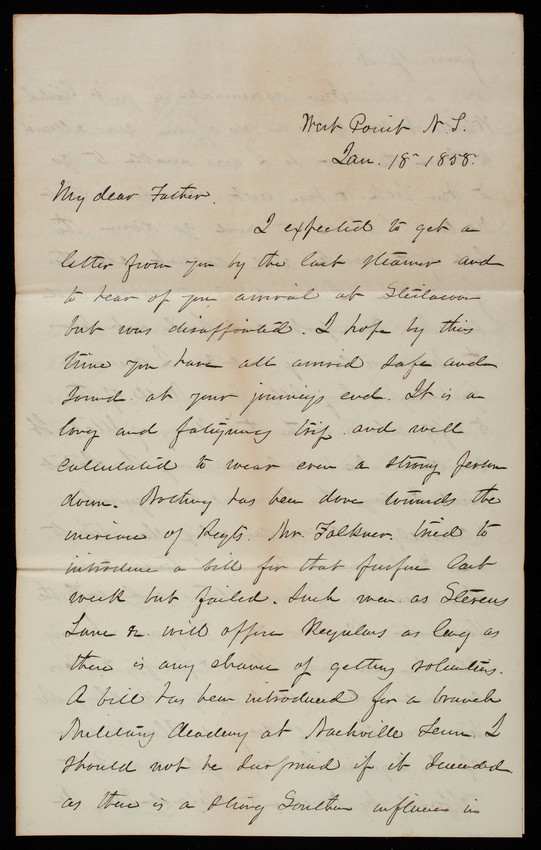 West Point N.Y.
Jan. 18 1858.
My dear Father.
I expected to get a
letter from you by the last steamer and
to hear of your arrival at Steilacoom
but was disappointed. I hope by this
time you have all arrived safe and
sound at your journeys end. It is a
long and fatiguing trip and well
calculated to wear even a strong person
down. Nothing has been done towards the
increase of Regts. Mr. Falkner tried to
introduce a bill for that purpose last
week but failed. Such men as Stevens
Lane &c. will oppose Regulars as long as
there is any chance of getting volunteers.
A bill has been introduced for a branch
Military Academy at Nashville Tenn. I
should not be surprised if it succeeded
as there is a strong Southern influence in